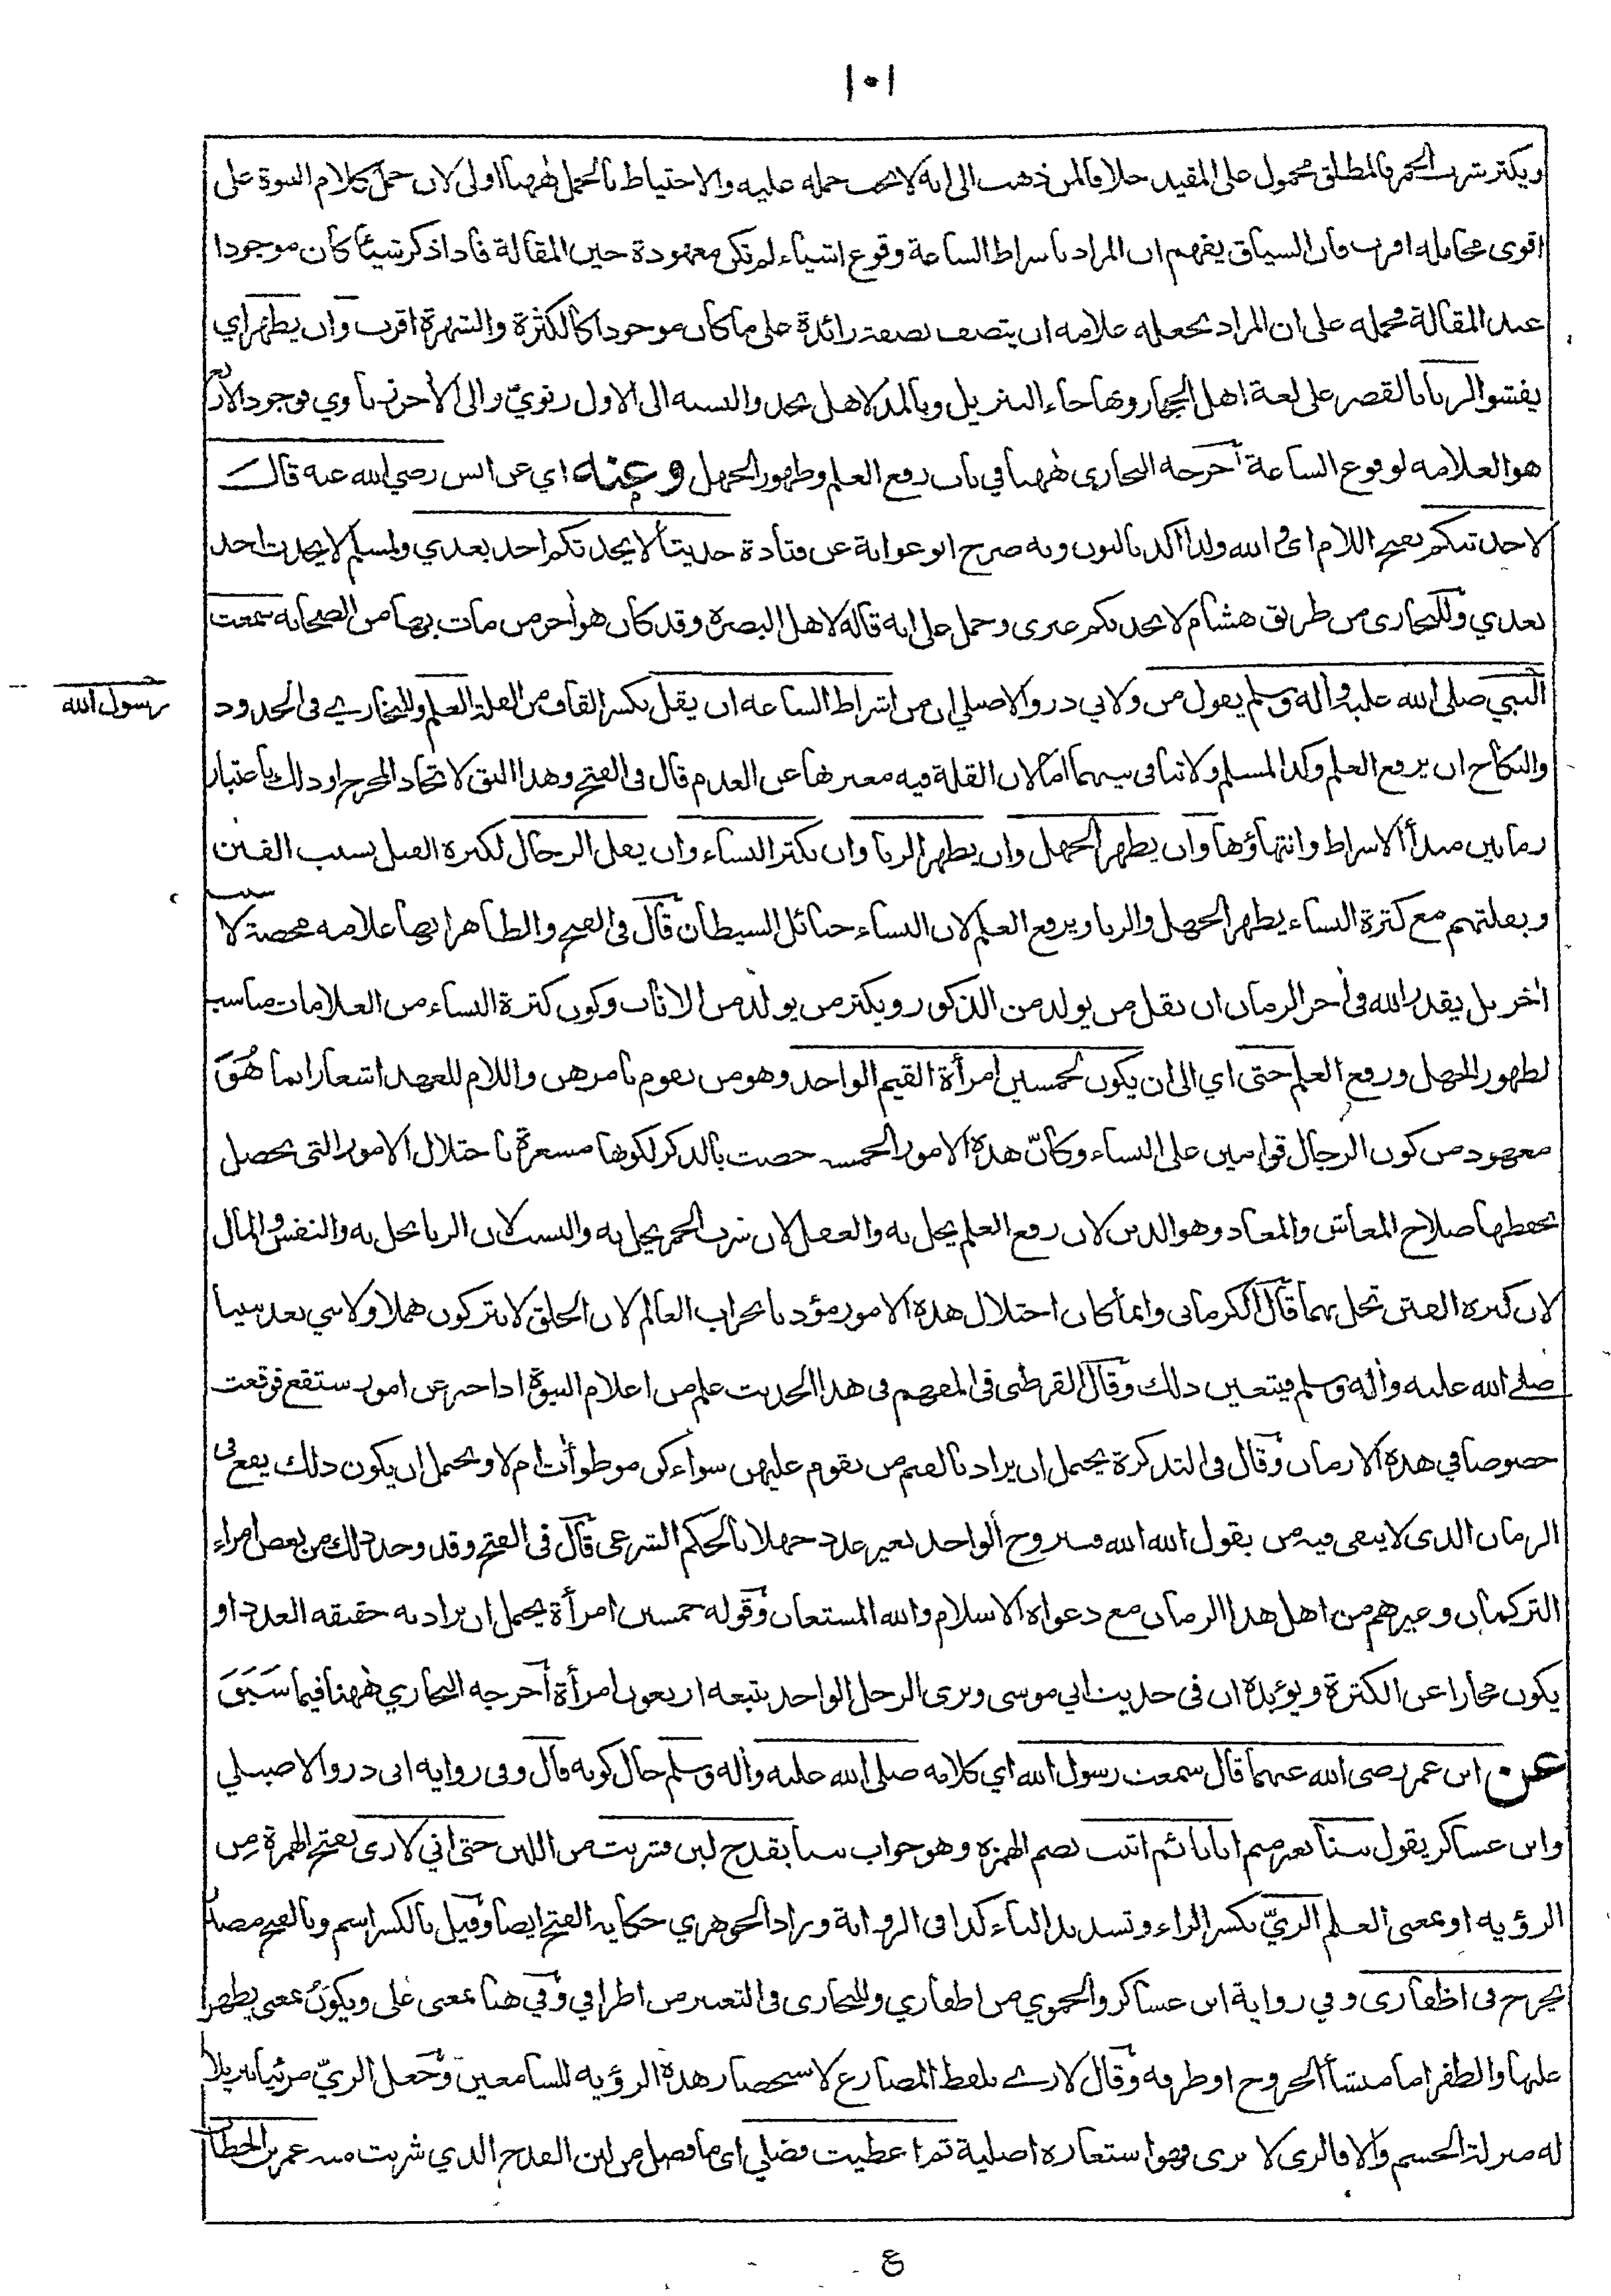 ١٠١
ويكثر شرب الخمر فالمطلق محمول على المقيد خلافا لمن ذهب الى انه لا يجب حمله عليه والاحتياط بالحمل ههنا اولى لان حمل كلام النبوة على
اقوى محامله اقرب فان السياق يفهم ان المراد باشراط الساعة وقوع اشياء لم تكن معهودة حين المقالة فاذا ذكر شيئا كان موجودا
عند المقالة فحمله على ان المراد بجعله علامة ان يتصف بصفة زائدة على ما كان موجودا كالكثرة والشهرة اقرب وان يظهر اي
يفشو الزنا بالقصر على لغة اهل الحجاز وبها جاء التنزيل وبالمد لاهل نجد والنسبة الى الاول زنوي والى الآخر زناوي فوجود الاربع
هو العلامة لوقوع الساعة اخرجه البخاري ههنا في باب رفع العلم وظهور الجهل وعنه اي عن انس رضي الله عنه قال
لاحدثنكم بفتح اللام اي والله ولذا اكد بالنون وبه صرح ابو عوانة عن قتادة حديثا لا يحدثكم احد بعدي ولمسلم لا يحدث احد
بعدي وللبخاري من طريق هشام لا يحدثكم غيري وحمل على انه قاله لاهل البصرة وقد كان هو آخر من مات بها من الصحابة سمعت
النبي صلى الله عليه وآله وسلم يقول من ولابي ذر والاصيلي ان من اشراط الساعة ان يقل بكسر القاف من القلة العلم وللبخاري في الحدود
رسول الله
والنكاح ان يرفع العلم وكذا لمسلم ولا تنافي بينهما اما لان القلة فيه معبر بها عن العدم قال في الفتح وهذا اليق لاتحاد المخرج او ذلك باعتبار
زمانين مبدأ الاشراط وانتهاؤها وان يظهر الجهل وان يظهر الزنا وان تكثر النساء وان يقل الرجال لكثرة القتل بسبب الفتن
وبقلتهم مع كثرة النساء يظهر الجهل والزنا ويرفع العلم لان النساء حبائل الشيطان قال في الفتح والظاهر انها علامة محضة لا لسبب
آخر بل يقدر الله في آخر الزمان ان يقل من يولد من الذكور ويكثر من يولد من الاناث وكون كثرة النساء من العلامات مناسب
لظهور الجهل ورفع العلم حتى اي الى ان يكون لخمسين امرأة القيم الواحد وهو من يقوم بامرهن واللام للعهد اشعارا بما هُوَ
معهود من كون الرجال قوامين على النساء وكأنّ هذه الامور الخمسة خصت بالذكر لكونها مشعرة باختلال الامور التي يحصل
بحفظها صلاح المعاش والمعاد وهو الدين لان رفع العلم يخل به والعقل لان شرب الخمر يخل به والنسب لان الزنا يخل به والنفس والمال
لان كثرة الفتن تخل بهما قال الكرماني وانما كان اختلال هذه الامور مؤذنا بخراب العالم لان الخلق لا يتركون هملا ولا نبي بعد نبينا
صلى الله عليه وآله وسلم فيتعين ذلك وقال القرطبي في المفهم في هذا الحديث علم من اعلام النبوة اذ اخبر عن امور ستقع فوقعت
خصوصا في هذه الازمان وقال في التذكرة يحتمل ان يراد بالقيم من يقوم عليهن سواء كن موطوآت ام لا ويحتمل ان يكون ذلك يقع في
الزمان الذي لا يبقى فيه من يقول الله الله فيتزوج الواحد بغير عدد جهلا بالحكم الشرعي قال في الفتح وقد وجد ذلك من بعض امراء
التركمان وغيرهم من اهل هذا الزمان مع دعواه الاسلام والله المستعان وقوله خمسين امرأة يحتمل ان يراد به حقيقة العدد او
يكون مجازا عن الكثرة ويؤيده ان في حديث ابي موسى وترى الرجل الواحد يتبعه اربعون امرأة اخرجه البخاري ههنا فيما سَبَقَ
عن ابن عمر رضي الله عنهما قال سمعت رسول الله اي كلامه صلى الله عليه وآله وسلم حال كونه قال وفي رواية ابي ذر والاصيلي
وابن عساكر يقول بينا بغير ميم انا نائم اتيت بضم الهمزة وهو جواب بينا بقدح لبن فشربت من اللبن حتى اني لارى بفتح الهمزة مِن
الرؤية او بمعنى العلم الريّ بكسر الراء وتشديد الياء كذا في الرواية وزاد الجوهري حكاية الفتح ايضا وقيل بالكسر اسم وبالفتح مصدر
يخرج في اظفاري وفي رواية ابن عساكر والحموي من اظفاري وللبخاري في التعبير من اطرافي وفي هنا بمعنى على ويكون بمعنى يظهر
عليها والظفر اما منشأ الخروج او طرفه وقال لارى بلفظ المضارع لاستحضار هذه الرؤية للسامعين وجعل الريّ مرئيا تنزيلا
له منزلة الجسم والا فالري لا يرى فهو استعارة اصلية ثم اعطيت فضلي اي ما فضل من لبن القدح الذي شربت منه عمر بن الخطاب
ع